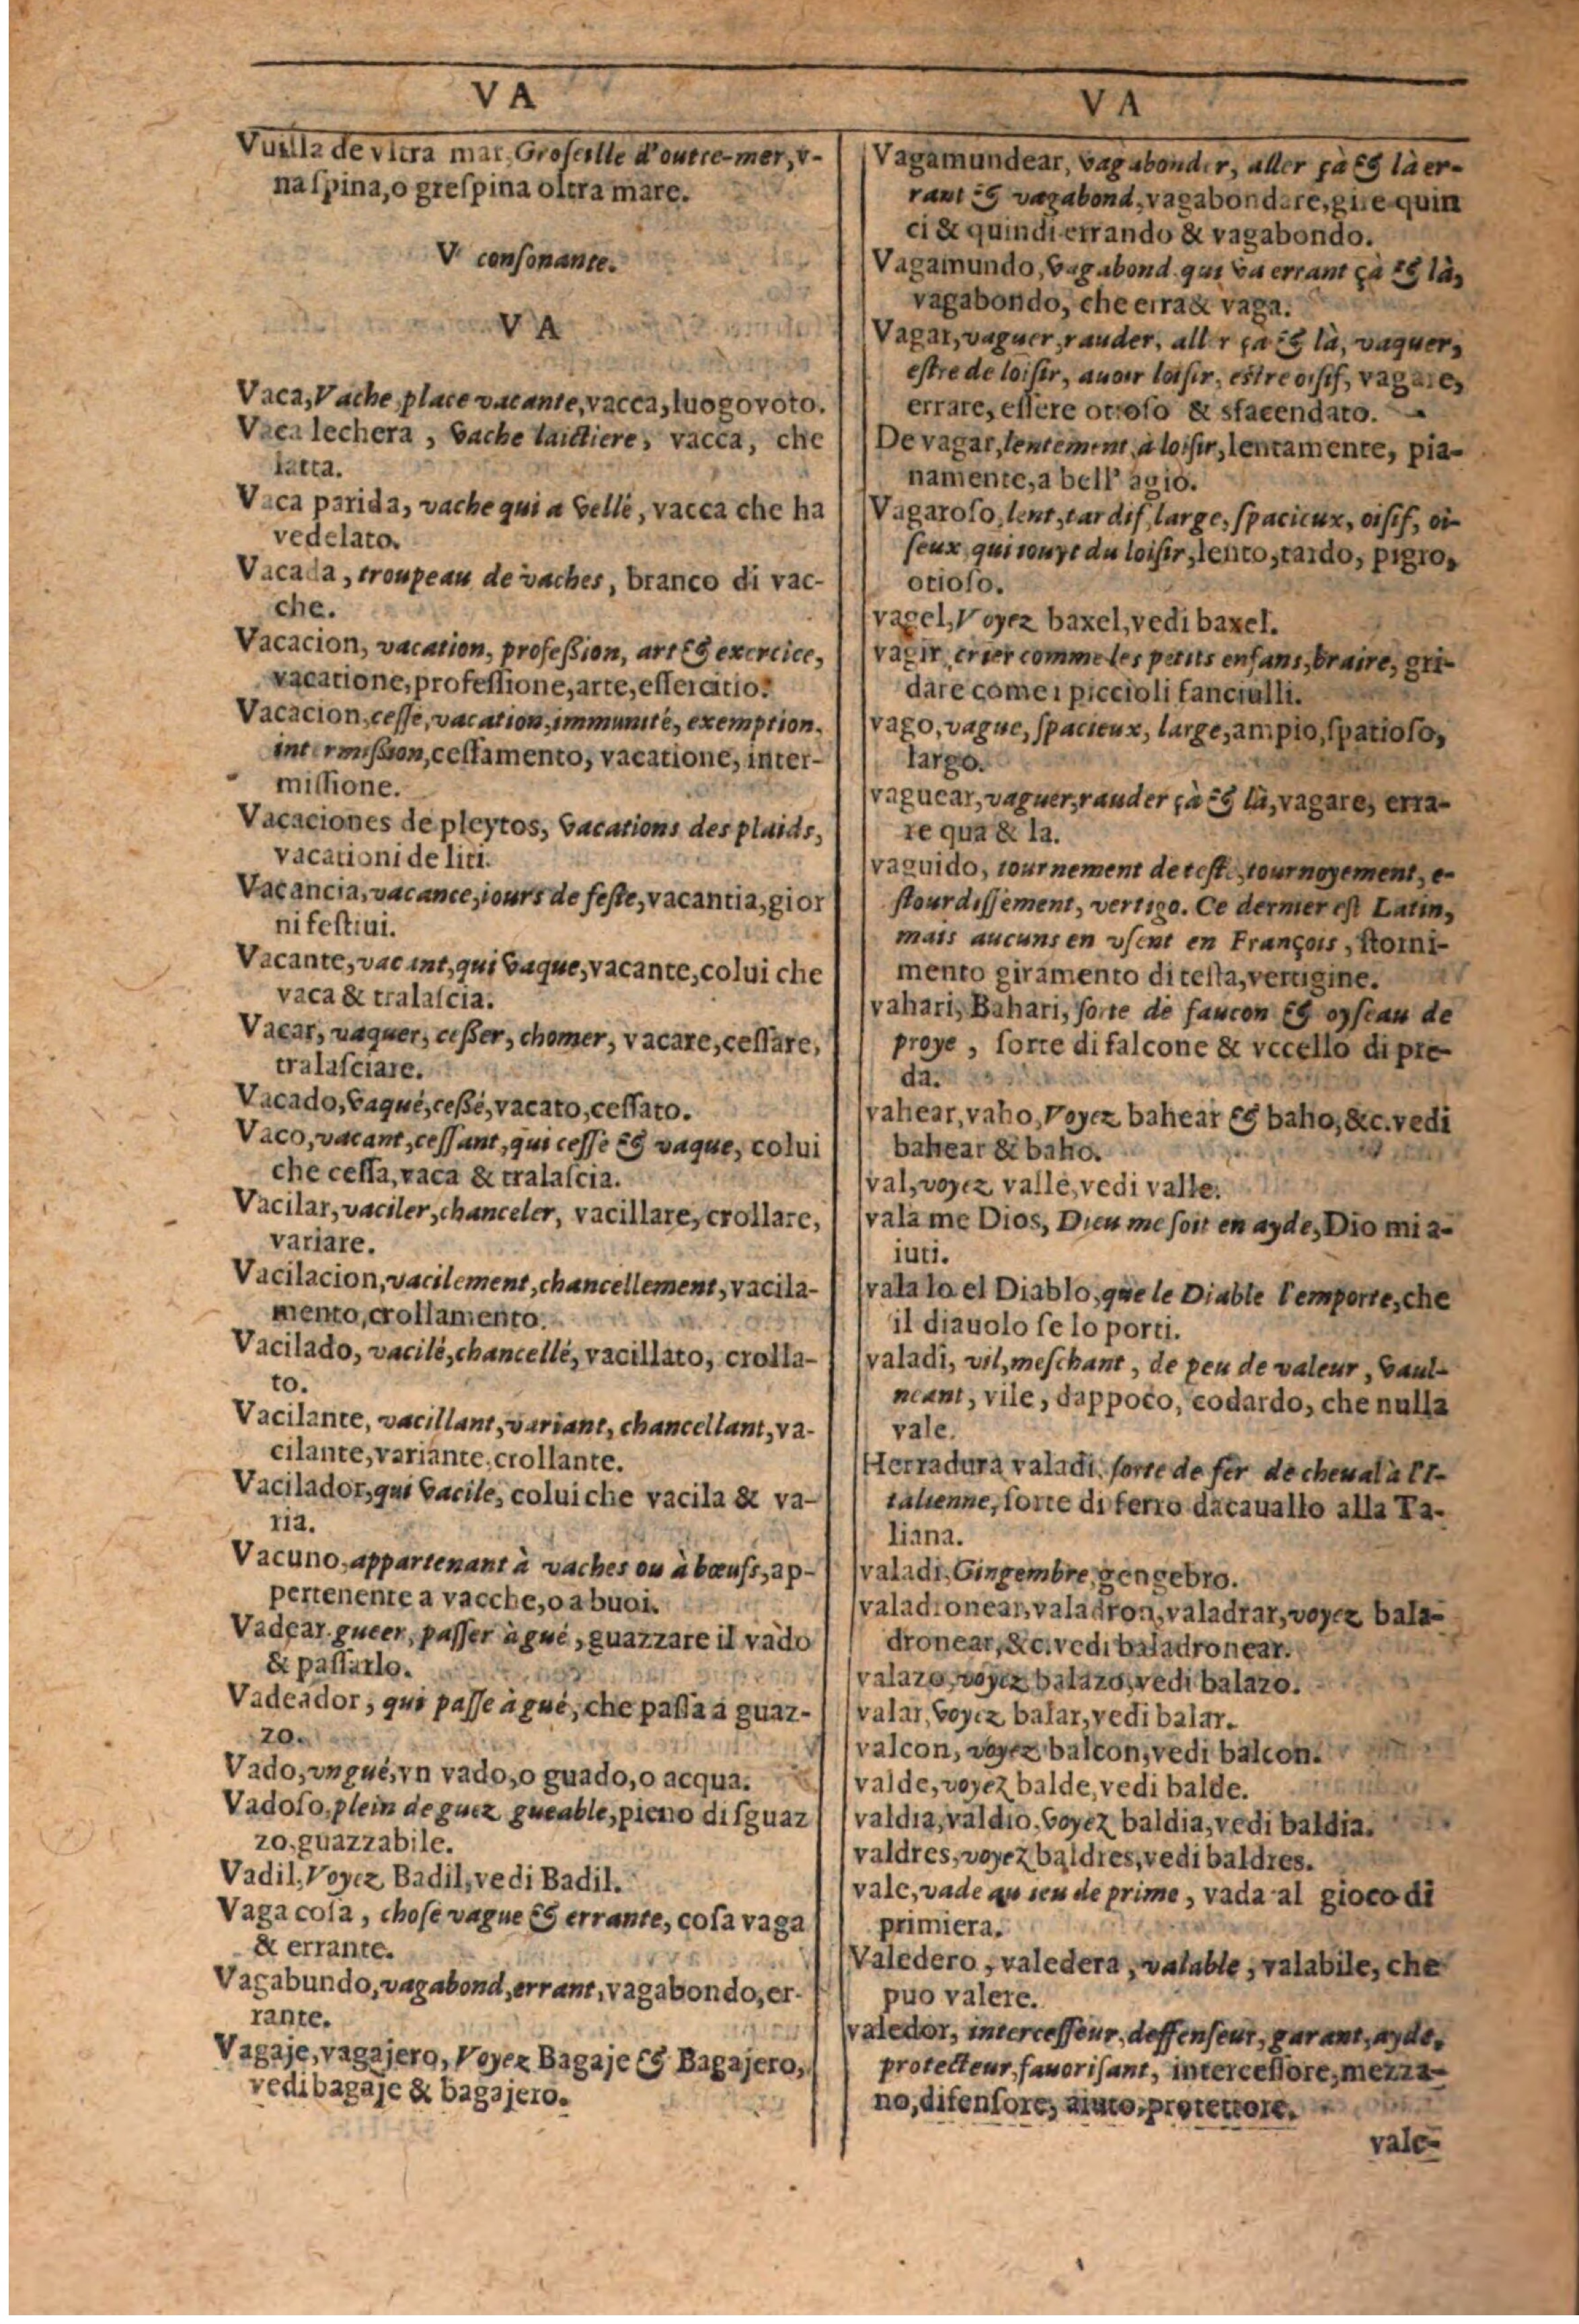 VA
Vuilla de vltra mar, Groseille d'outre-mer, v-
na ſpina, o greſpina oltra mare.
V conſonante.
VA
Vaca, Vache, place vacante, vacca, luogo voto.
Vaca lechera, vache laictiere, vacca, che
latta.
Vaca parida, vache qui a vellé, vacca che ha
vedelato.
Vacada, troupeau de vaches, branco di vac-
che.
Vacacion, vacation, profeſsion, art & exercice,
vacatione, profeſſione, arte, eſſercitio.
Vacacion, ceſſe, vacation, immunité, exemption,
intermiſsion, ceſſamento, vacatione, inter-
miſſione.
Vacaciones de pleytos, vacations des plaids,
vacationi de liti.
Vacancia, vacance, iours de feſte, vacantia, gior
ni feſtiui.
Vacante, vacant, qui vaque, vacante, colui che
vaca & tralaſcia.
Vacar, vaquer, ceſſer, chomer, vacare, ceſſare,
tralaſciare.
Vacado, vaqué, ceſſé, vacato, ceſſato.
Vaco, vacant, ceſſant, qui ceſſe & vaque, colui
che ceſſa, vaca & tralaſcia.
Vacilar, vaciler, chanceler, vacillare, crollare,
variare.
Vacilacion, vacilement, chancellement, vacila-
mento, crollamento.
Vacilado, vacilé, chancellé, vacillato, crolla-
to.
Vacilante, vacillant, variant, chancellant, va-
cilante, variante, crollante.
Vacilador, qui vacile, colui che vacila & va-
ria.
Vacuno, appartenant à vaches ou à bœufs, ap-
pertenente a vacche, o a buoi.
Vadear gueer, paſſer à gué, guazzare il vado
& paſſarlo.
Vadeador, qui paſſe à gué, che paſſa a guaz-
zo.
Vado, vn gué, vn vado, o guado, o acqua.
Vadoſo, plein de guez gueable, pieno di ſguaz
zo, guazzabile.
Vadil, Voyez Badil, vedi Badil.
Vaga coſa, choſe vague & errante, coſa vaga
& errante.
Vagabundo, vagabond, errant, vagabondo, er-
rante.
Vagaje, vagajero, Voyez Bagaje & Bagajero,
vedi bagaje & bagajero.
VA
Vagamundear, vagabonder, aller çà & là er-
rant & vagabond, vagabondare, gire quin
ci & quindi errando & vagabondo.
Vagamundo, vagabond qui va errant çà & là,
vagabondo, che erra & vaga.
Vagar, vaguer, rauder, aller çà & là, vaquer,
eſtre de loiſir, auoir loiſir, eſtre oiſif, vagare,
errare, eſſere otioſo & sfacendato.
De vagar, lentement, à loiſir, lentamente, pia-
namente, a bell' agio.
Vagaroſo, lent, tardif, large, ſpacieux, oiſif, oi-
ſeux, qui iouyt du loiſir, lento, tardo, pigro,
otioſo.
vagel, Voyez baxel, vedi baxel.
vagir, crier comme les petits enfans, braire, gri-
dare come i piccioli fanciulli.
vago, vague, ſpacieux, large, ampio, ſpatioſo,
largo.
vaguear, vaguer, rauder çà & là, vagare, erra-
re qua & la.
vaguido, tournement de teſte, tournoyement, e-
ſtourdiſſement, vertigo. Ce dernier eſt Latin,
mais aucuns en vſent en François, ſtorni-
mento giramento di teſta, vertigine.
vahari, Bahari, ſorte de faucon & oyſeau de
proye, ſorte di falcone & vccello di pre-
da.
vahear, vaho, Voyez bahear & baho, &c. vedi
bahear & baho.
val, voyez valle, vedi valle.
vala me Dios, Dieu me ſoit en ayde, Dio mi a-
iuti.
vala lo el Diablo, que le Diable l'emporte, che
il diauolo ſe lo porti.
valadi, vil, meſchant, de peu de valeur, vaul-
neant, vile, dappoco, codardo, che nulla
vale.
Herradura valadi, ſorte de fer de cheual à l'I-
talienne, ſorte di ferro da cauallo alla Ta-
liana.
valadi, Gingembre, gengebro.
valadronear, valadron, valadrar, voyez bala-
dronear, &c. vedi baladronear.
valazo, voyez balazo, vedi balazo.
valar, voyez balar, vedi balar.
valcon, voyez balcon, vedi balcon.
valde, voyez balde, vedi balde.
valdia, valdio, voyez baldia, vedi baldia.
valdres, voyez baldres, vedi baldres.
vale, vade au ieu de prime, vada al gioco di
primiera.
Valedero, valedera, valable, valabile, che
puo valere.
valedor, interceſſeur, deffenſeur, garant, ayde,
protecteur, fauoriſant, interceſſore, mezza-
no, difenſore, aiuto, protettore.
vale-